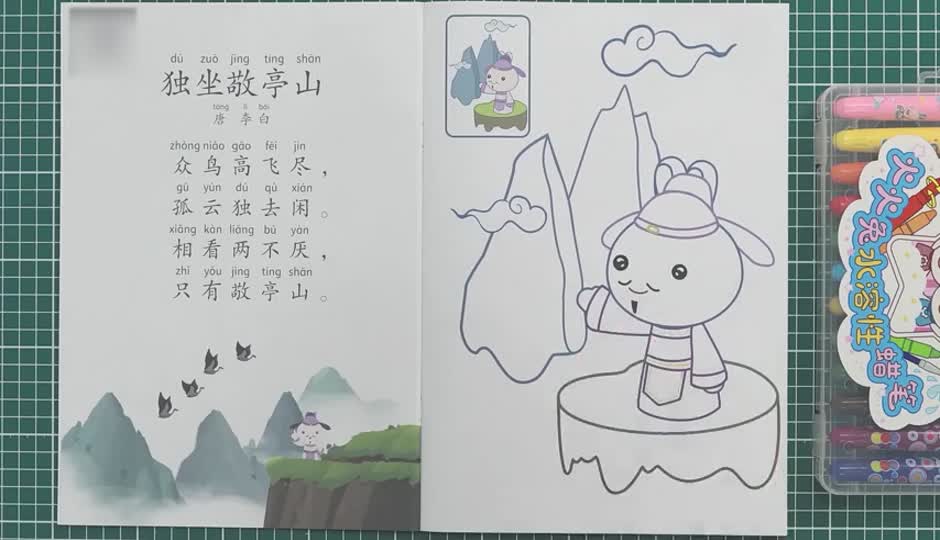 dú zuò jìng tíng shān
独坐敬亭山
táng lǐ bái
唐 李白
zhòng niǎo gāo fēi jìn
众鸟高飞尽，
gū yún dú qù xián
孤云独去闲。
xiāng kàn liǎng bú yàn
相看两不厌，
zhǐ yǒu jìng tíng shān
只有敬亭山。
火火兔水溶性蜡笔